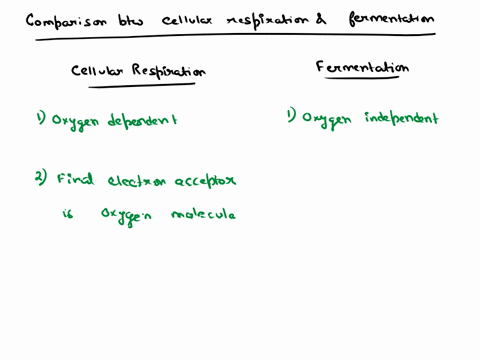 Comparison btw cellular respiration & fermentation
Cellular Respiration
Fermentation
1) Oxygen dependent
1) Oxygen independent
2) Final electron acceptor
is Oxygen molecule